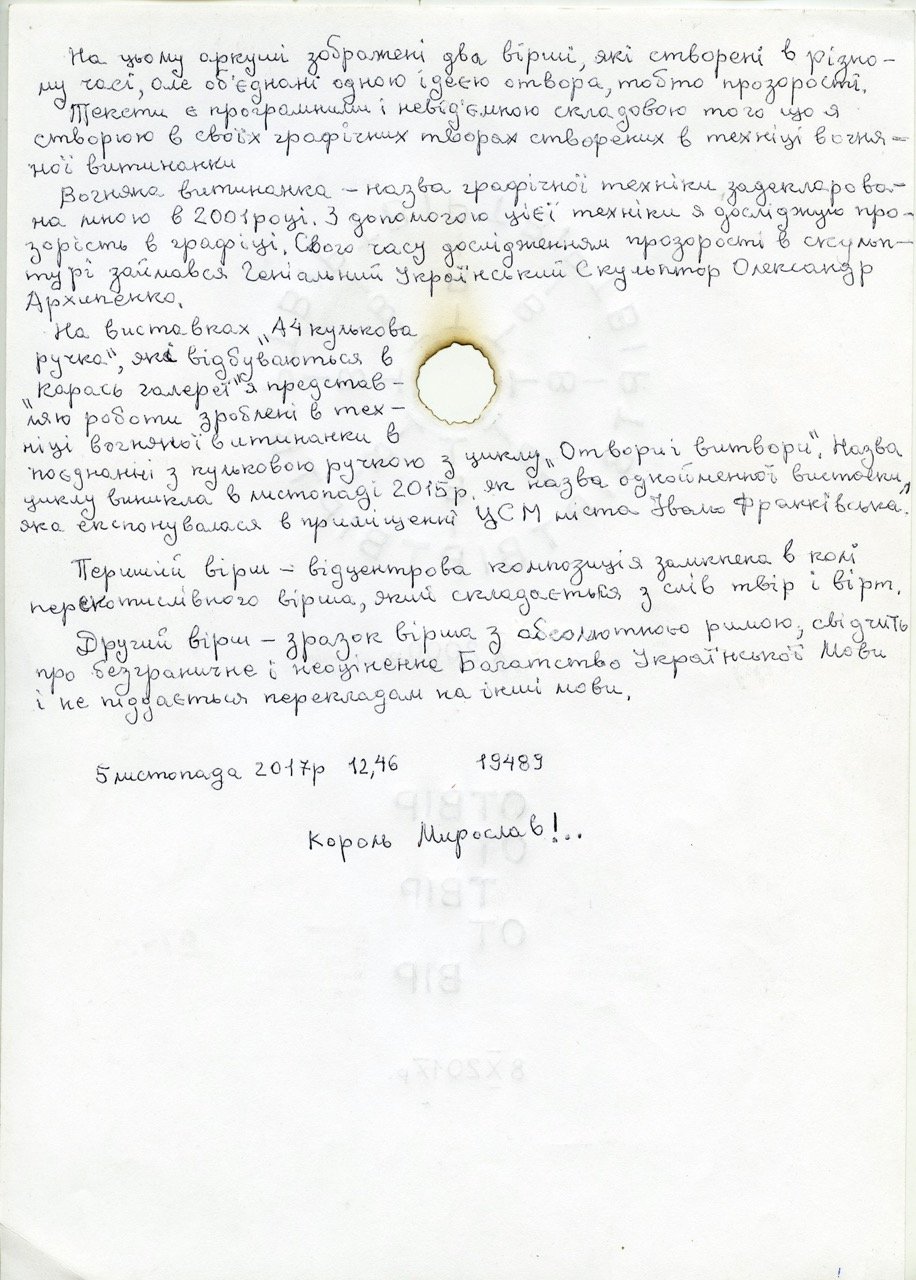 На цьому аркуші зображені два вірші, які створені в різно-
му часі, але об'єднані одною ідеєю отвора, тобто прозорості.
Тексти є програмними і невід'ємною складовою того що я
створюю в своїх графічних творах створених в техніці вогня-
ної витинанки
Вогняна витинанка – назва графічної техніки задекларова-
на мною в 2001 році. З допомогою цієї техніки я досліджую про-
зорість в графіці. Свого часу дослідженням прозорості в скульп-
турі займався Геніальний Український Скульптор Олександр
Архипенко.
На виставках „А4 кулькова
ручка", які відбуваються в
„Карась галереї" я представ-
ляю роботи зроблені в тех-
ніці вогняної витинанки в
поєднанні з кульковою ручкою з циклу „Отвори і витвори". Назва
циклу виникла в листопаді 2015 р. як назва однойменної виставки,
яка експонувалася в приміщенні ЦСМ міста Івано Франківська.
Перший вірш – відцентрова композиція замкнена в колі
перекотислівного вірша, який складається з слів твір і вірт.
Другий вірш – зразок вірша з абсолютною римою, свідчить
про безграничне і неоціненне Багатство Української Мови
і не піддається перекладам на інші мови.
5 листопада 2017р 12,46 19489
Король Мирослав!..
ОТВІР
ОТ
ТВІР
ОТ
ВІР
8 X 2017р